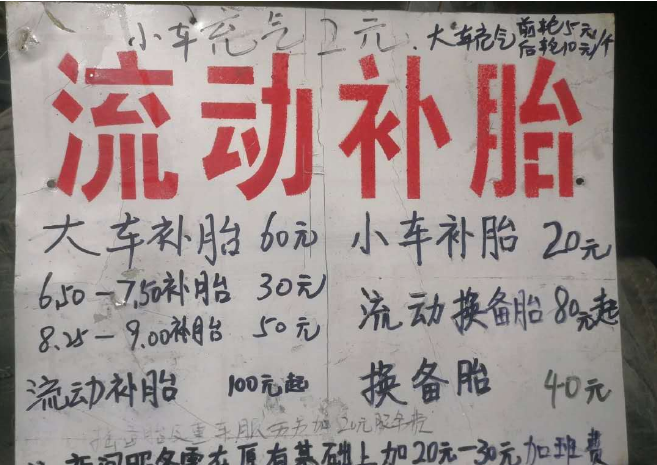 小车充气2元. 大车充气 前轮5元
后轮10元/个
流动补胎
大车补胎 60元 小车补胎 20元
6.50-7.50补胎 30元
流动换备胎80元起
8.25-9.00补胎 50元
流动补胎 100元起 换备胎 40元
夜间服务需在原有基础上加20元-30元加班费